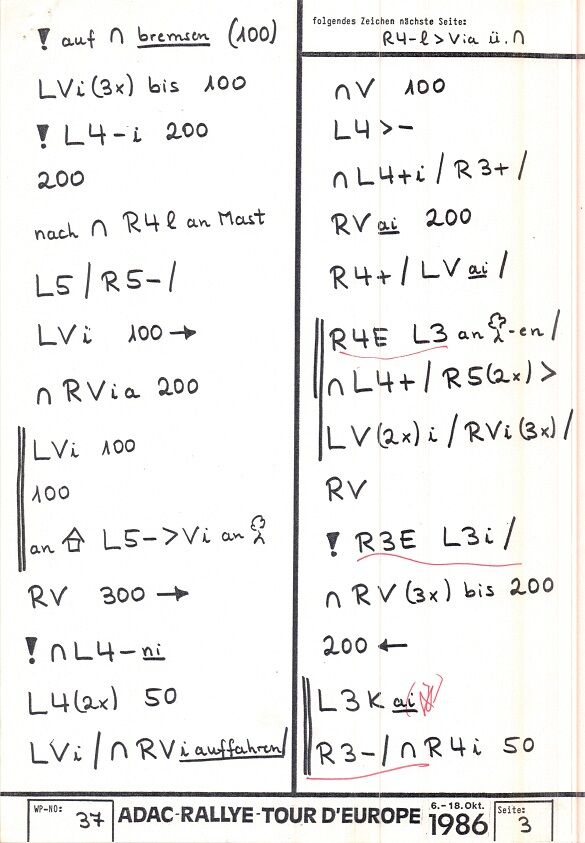 ! auf ∩ bremsen (100)
LVi (3x) bis 100
! L4-i 200
200
nach ∩ R4 l an Mast
L5 / R5- /
LVi 100 →
∩ RVia 200
LVi 100
100
an ⇧ L5->Vi an
RV 300 →
! ∩ L4- ni
L4(2x) 50
LVi / ∩ RVi auffahren /
folgendes Zeichen nächste Seite:
R4-l > Via ü. ∩
∩V 100
L4 > -
∩ L4+i / R3+ /
RV ai 200
R4+ / LV ai /
R4E L3 an -en /
∩ L4+ / R5(2x) >
LV(2x) i / RVi (3x) /
RV
! R3E L3i /
∩ RV (3x) bis 200
200 ←
L3 K ai
R3- / ∩ R4i 50
WP-NO: 37
ADAC-RALLYE-TOUR D'EUROPE
6.-18. Okt.
1986
Seite: 3